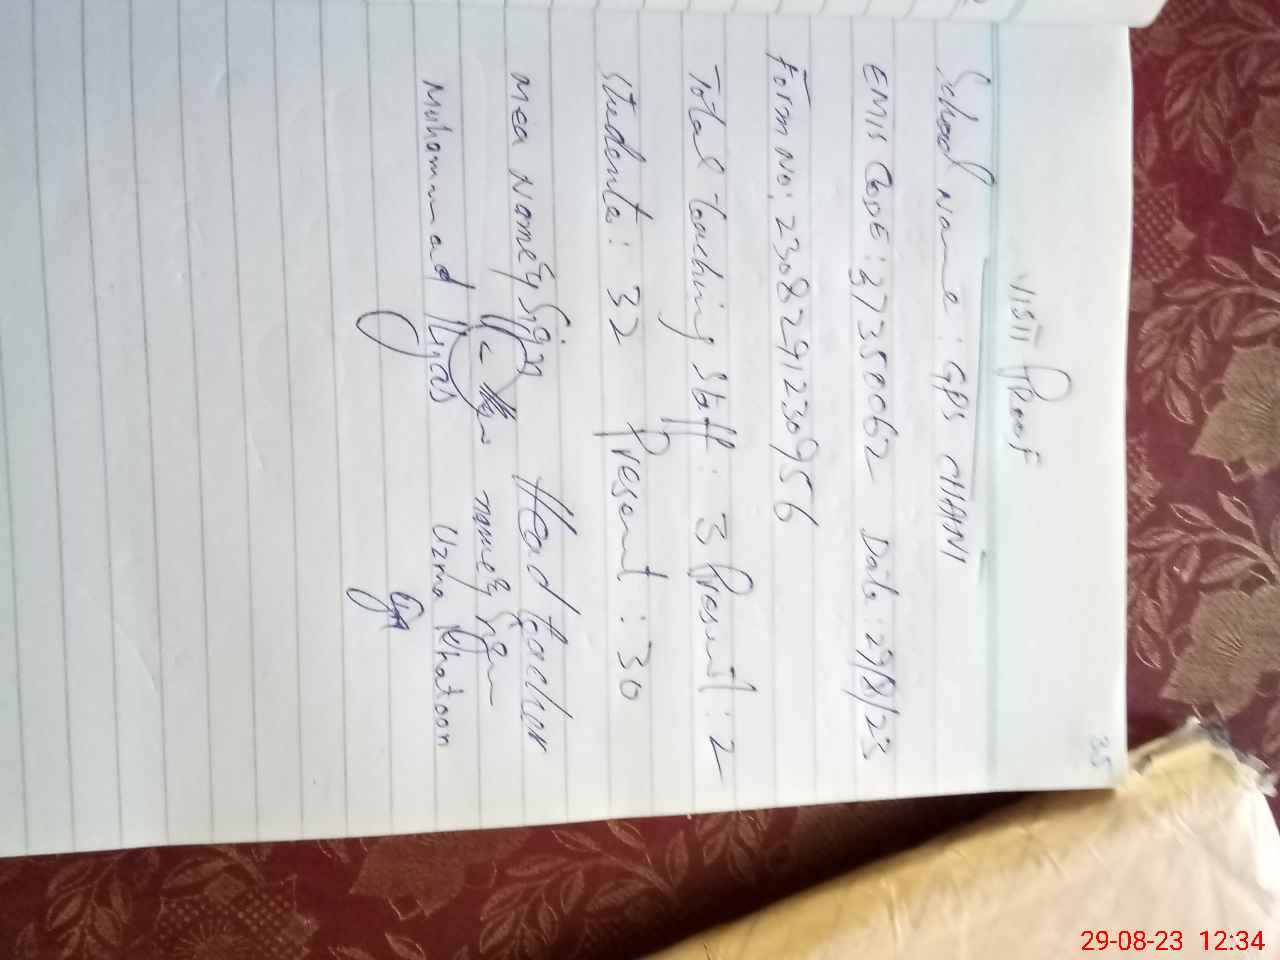 35
VISIT Proof
School Name : GPS CHANI
EMIS CODE : 37350062 Date : 29/8/23
Form No: 2308291230956
Total teaching staff : 3 Present : 2
Students : 32 Present : 30
Mea Name & Sign Head teacher
name & Sign
Muhammad Ilyas Uzma Khatoon
29-08-23 12:34